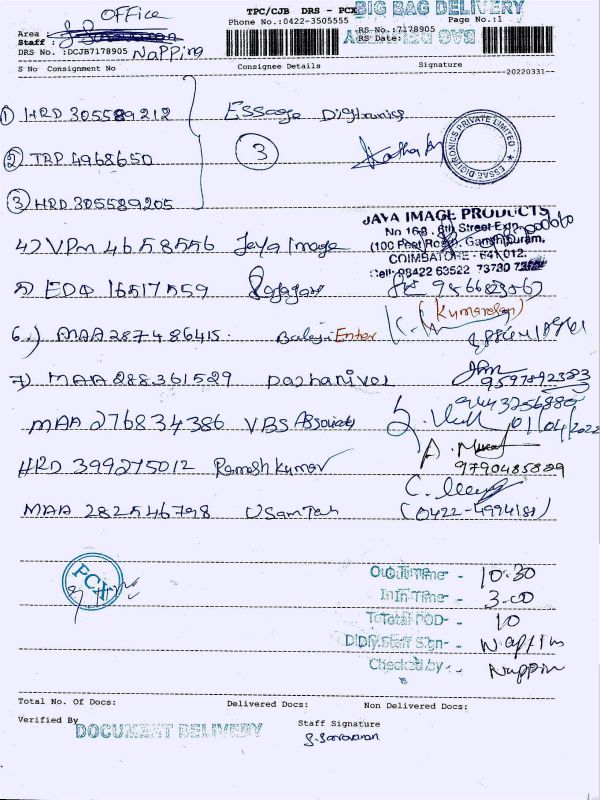 OFFICE
TPC/CJB DRS - PCX
BIG BAG DELIVERY
Phone No.:0422-3505555
Page No.:1
Area
Staff :
RS No.:7178905
RS Date:
BIG BAG DELIVERY
DRS No. :DCJB7178905
Napping
S No Consignment No Consignee Details Signature
20220331
① HRD 305589212 Essage Digitronics
ESSAE DIGITRONICS PRIVATE LIMITED
② TRP 4968650 ③
③ HRD 305589205
JAYA IMAGE PRODUCTS
No 168, 6th Street Extn.
(100 Feet Road), Gandhipuram,
COIMBATORE - 641 012.
Cell: 98422 63522 73730
4) VPM 4658556 Jaya Image
5) EDQ 16517559 Rajagan
(Kumaresan)
6.) MAA 287486415. Balaji Enter
7) MAA 288361529 Pazhanivel
9597892383
MAA 276834386 VBS Associates
01/04/2022
HRD 399275012 Ramesh Kumar
9790485829
MAA 282546798 Usamteh
(0422-4994181)
PCX
Out Time - 10.30
In Time - 3.00
Total POD - 10
DlDly.Staff Sign - Nappin
Checked by - Nappin
Total No. Of Docs: Delivered Docs: Non Delivered Docs:
Verified By
DOCUMENT DELIVERY
Staff Signature
S. Saravanan